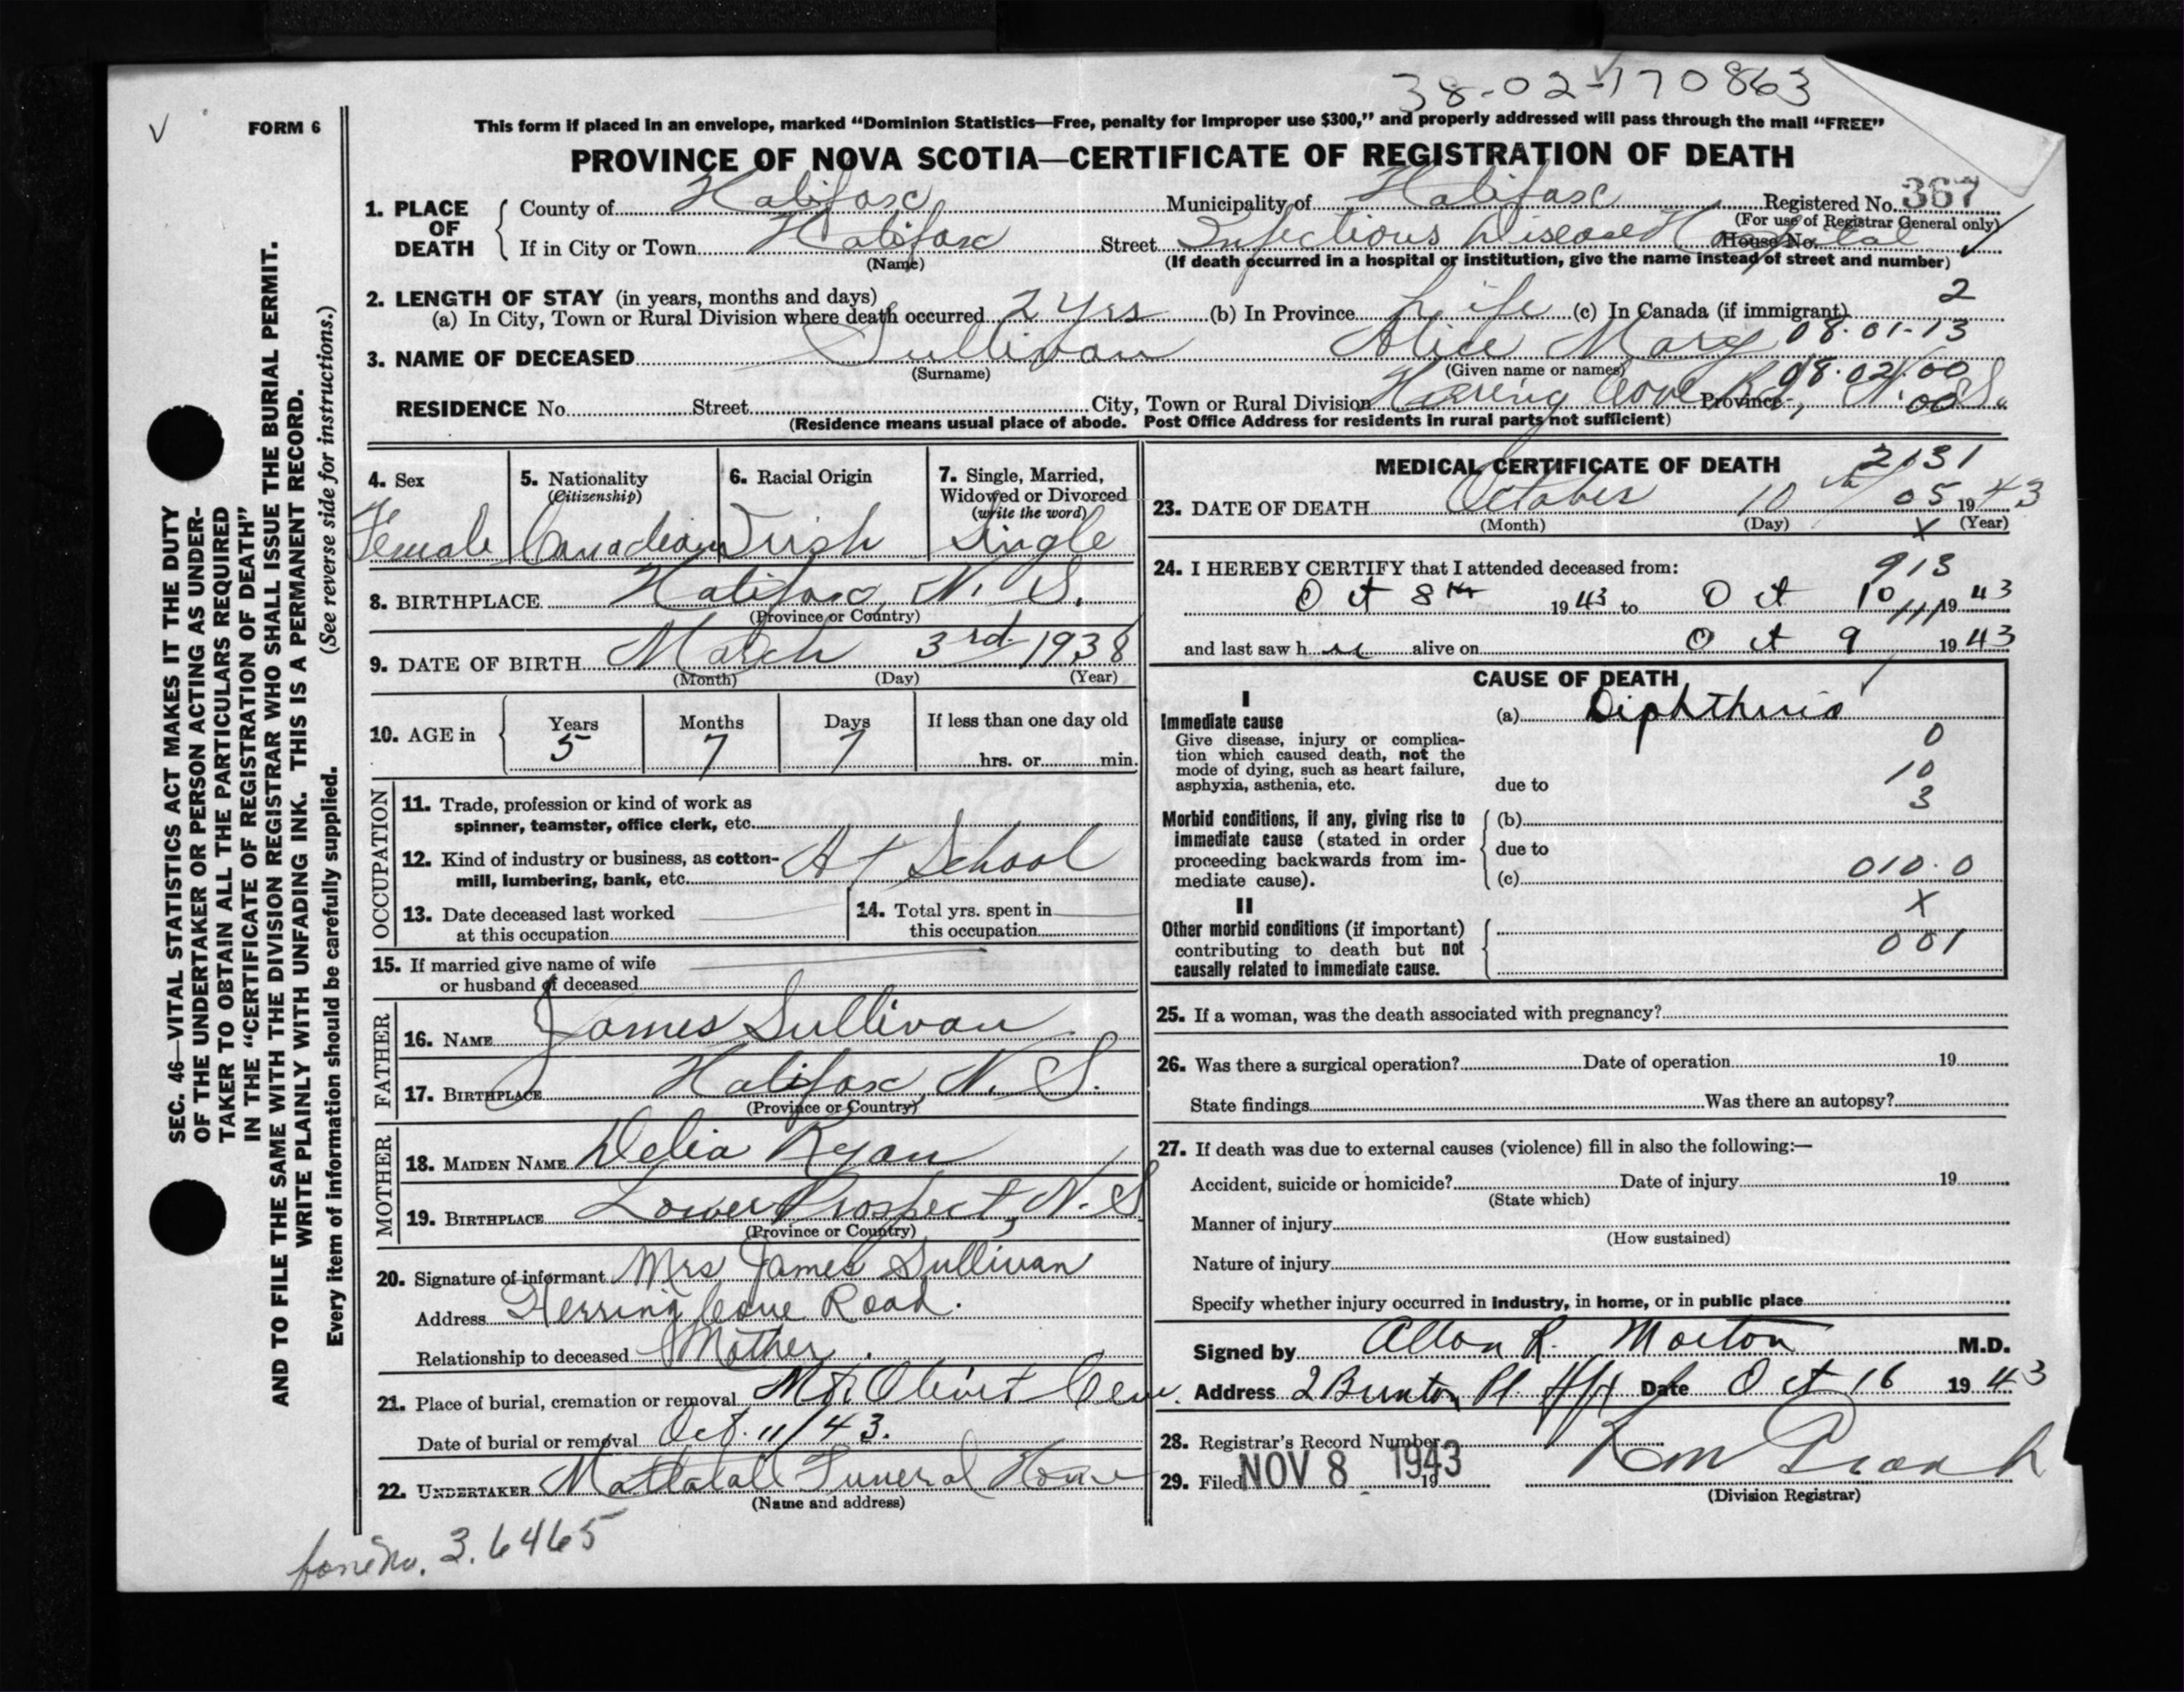 38-02-170863
FORM 6
This form if placed in an envelope, marked “Dominion Statistics—Free, penalty for improper use $300,” and properly addressed will pass through the mail “FREE”
PROVINCE OF NOVA SCOTIA—CERTIFICATE OF REGISTRATION OF DEATH
1. PLACE OF DEATH
County of Halifax Municipality of Halifax Registered No. 367
(For use of Registrar General only)
If in City or Town Halifax Street Infectious Disease Hospital House No.
(Name) (If death occurred in a hospital or institution, give the name instead of street and number)
2. LENGTH OF STAY (in years, months and days) 2
(a) In City, Town or Rural Division where death occurred 2 Yrs (b) In Province Life (c) In Canada (if immigrant)
08-01-13
3. NAME OF DECEASED Sullivan Alice Mary
(Surname) (Given name or names) 08-02-00
RESIDENCE No. Street City, Town or Rural Division Herring Cove Rd, Province N.S. 00
(Residence means usual place of abode. Post Office Address for residents in rural parts not sufficient)
4. Sex Female
5. Nationality (Citizenship) Canadian
6. Racial Origin Irish
7. Single, Married, Widowed or Divorced (write the word) Single
8. BIRTHPLACE Halifax, N. S.
(Province or Country)
9. DATE OF BIRTH March 3rd 1938
(Month) (Day) (Year)
10. AGE in Years Months Days If less than one day old
5 7 7 hrs. or min.
OCCUPATION
11. Trade, profession or kind of work as
spinner, teamster, office clerk, etc.
12. Kind of industry or business, as cotton-
mill, lumbering, bank, etc. At School
13. Date deceased last worked
at this occupation
14. Total yrs. spent in
this occupation
15. If married give name of wife
or husband of deceased
FATHER
16. NAME James Sullivan
17. BIRTHPLACE Halifax, N. S.
(Province or Country)
MOTHER
18. MAIDEN NAME Delia Ryan
19. BIRTHPLACE Lower Prospect, N. S
(Province or Country)
20. Signature of informant Mrs James Sullivan
Address Herring Cove Road.
Relationship to deceased Mother.
21. Place of burial, cremation or removal Mt. Olivet Cem.
Date of burial or removal Oct. 11/43.
22. UNDERTAKER Mattatall Funeral Home
(Name and address)
MEDICAL CERTIFICATE OF DEATH 2131
23. DATE OF DEATH October 10th 05 1943
(Month) (Day) X (Year)
24. I HEREBY CERTIFY that I attended deceased from: 913
Oct 8th 1943 to Oct 10 1943
111
and last saw her alive on Oct 9 1943
CAUSE OF DEATH
I
Immediate cause (a) Diphtheria
Give disease, injury or complica-
tion which caused death, not the
mode of dying, such as heart failure,
asphyxia, asthenia, etc. due to
0
10
3
Morbid conditions, if any, giving rise to
immediate cause (stated in order
proceeding backwards from im-
mediate cause).
(b)
due to
(c) 010.0
II X
Other morbid conditions (if important)
contributing to death but not
causally related to immediate cause.
001
25. If a woman, was the death associated with pregnancy?
26. Was there a surgical operation? Date of operation 19
State findings Was there an autopsy?
27. If death was due to external causes (violence) fill in also the following:—
Accident, suicide or homicide? Date of injury 19
(State which)
Manner of injury
(How sustained)
Nature of injury
Specify whether injury occurred in industry, in home, or in public place
Signed by Allan R. Morton M.D.
Address 2 Brunton Pl. Hfx Date Oct 16 1943
28. Registrar's Record Number
29. Filed NOV 8 1943 19
(Division Registrar)
No. 3.6465
SEC. 46—VITAL STATISTICS ACT MAKES IT THE DUTY
OF THE UNDERTAKER OR PERSON ACTING AS UNDER-
TAKER TO OBTAIN ALL THE PARTICULARS REQUIRED
IN THE “CERTIFICATE OF REGISTRATION OF DEATH”
AND TO FILE THE SAME WITH THE DIVISION REGISTRAR WHO SHALL ISSUE THE BURIAL PERMIT.
WRITE PLAINLY WITH UNFADING INK. THIS IS A PERMANENT RECORD.
Every item of information should be carefully supplied. (See reverse side for instructions.)